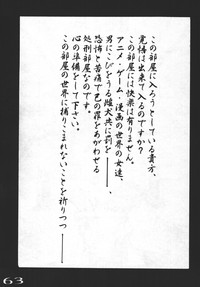 この部屋に入ろうとしている貴方、
覚悟は出来て入るのですか？
この部屋には快楽は有りません。
アニメ・ゲーム・漫画の世界の女達、
男にこびをうる雌犬共に罰を――
恐怖と苦痛で己の罪をあがわせる
処刑部屋なのです。
心の準備をして下さい。
この部屋の世界に捕りこまれないことを祈りつつ――
63